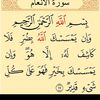 سورة الأنعام
بِسْمِ اللَّهِ الرَّحْمَٰنِ الرَّحِيمِ
وَإِن يَمْسَسْكَ اللَّهُ بِضُرٍّ فَلَا
كَاشِفَ لَهُ إِلَّا هُوَ وَإِن
يَمْسَسْكَ بِخَيْرٍ فَهُوَ عَلَىٰ كُلِّ
شَيْءٍ قَدِيرٌ